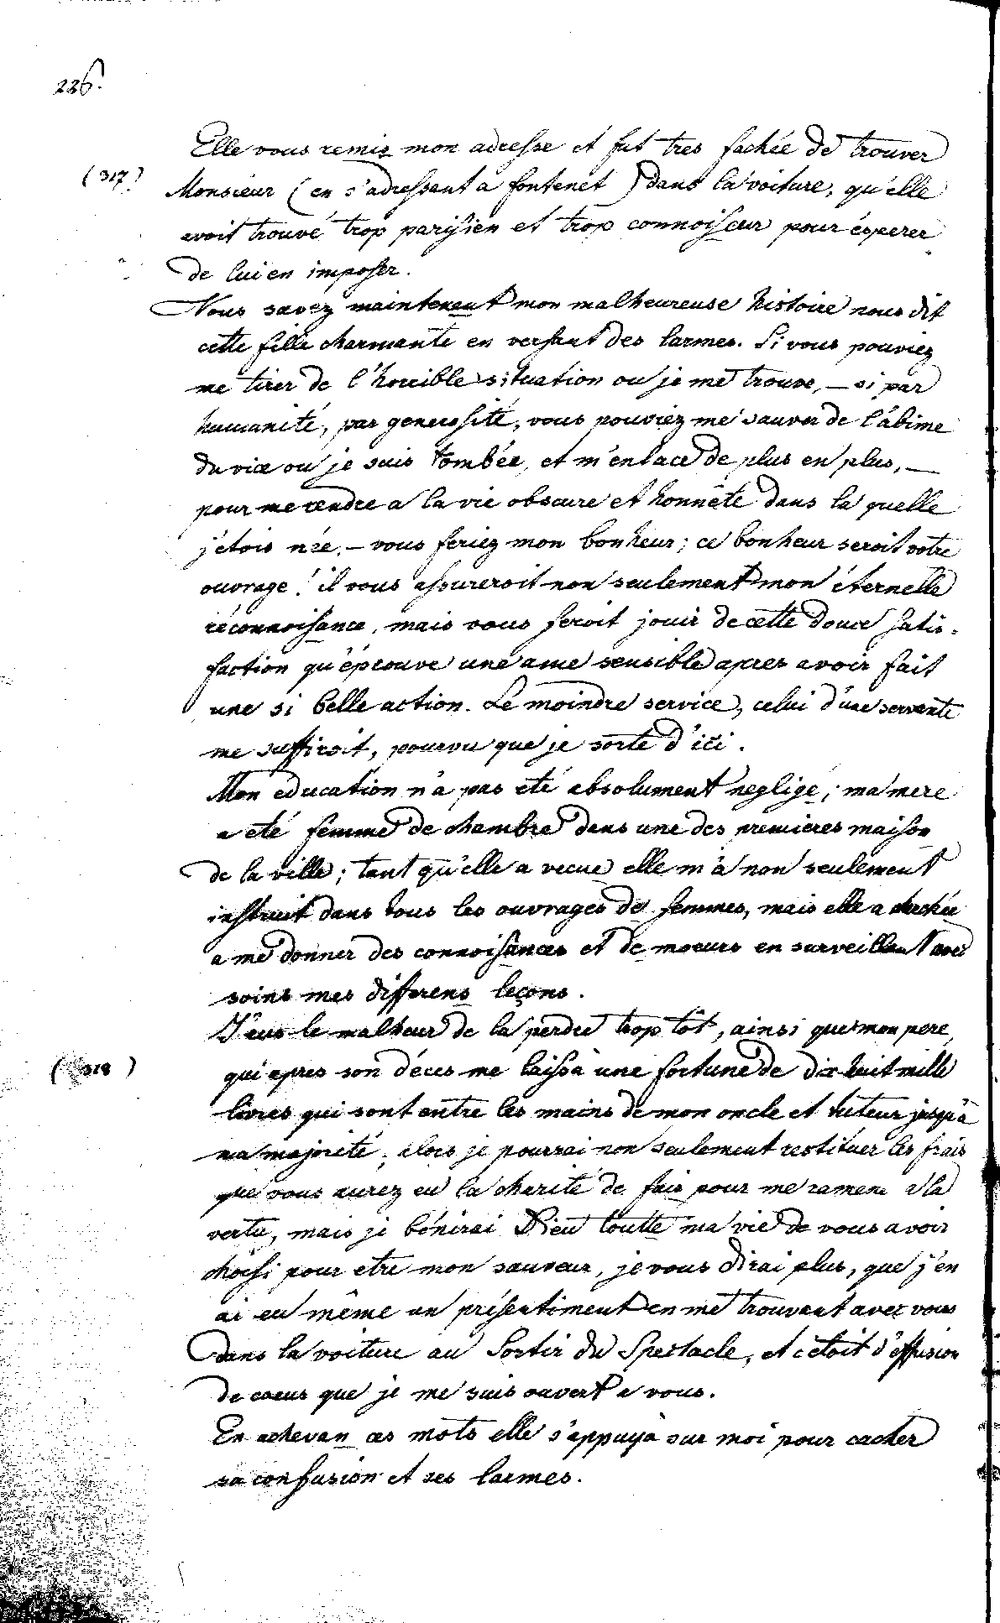 226.
Elle vous remis mon adresse et fut tres fachée de trouver
(317) Monsieur (en s'adressant a fontenet) dans la voiture, qu'elle
avoit trouvé trop parisien et trop connoisseur pour ésperer
de lui en imposer.
Vous savez maintenant mon malheureuse histoire nous dit
cette fille charmante en versant des larmes. Si vous pouviez
me tirer de l'horrible situation ou je me trouve, — si par
humanité, par generosité, vous pouviez me sauver de l'abime
du vice ou je suis tombée, et m'enlace de plus en plus, —
pour me rendre a la vie obscure et honnête dans la quelle
j'étois née, — vous feriez mon bonheur; ce bonheur seroit votre
ouvrage! il vous assureroit non seulement mon éternelle
réconnoissance, mais vous feroit jouir de cette douce satis-
faction qu'éprouve une ame sensible apres avoir fait
une si belle action. Le moindre service, celui d'une servante
me suffiroit, pourvu que je sorte d'ici.
Mon education n'a pas eté absolument negligé; ma mere
a eté femme de chambre dans une des premieres maison
de la ville; tant qu'elle a vecue elle m'a non seulement
instruit dans tous les ouvrages de femmes, mais elle a cherchée
a me donner des connoissances et de moeurs en surveillant avec
soins mes differens leçons.
J'eus le malheur de la perdre trop tôt, ainsi que mon pere,
(318) qui apres son déces me laissa une fortune de dix huit mille
livres qui sont entre les mains de mon oncle et tuteur jusqu'à
ma majorité; alors je pourrai non seulement restituer les frais
que vous aurez eu la charité de fair pour me ramene a la
vertu, mais je bénirai Dieu toutte ma vie de vous avoir
choisi pour etre mon sauveur, je vous dirai plus, que j'en
ai eu même un présentiment en me trouvant avec vous
dans la voiture au sortir du Spectacle, et c'étoit d'effusion
de coeur que je me suis ouvert a vous.
En achevan ces mots elle s'appuya sur moi pour cacher
sa confusion et ses larmes.